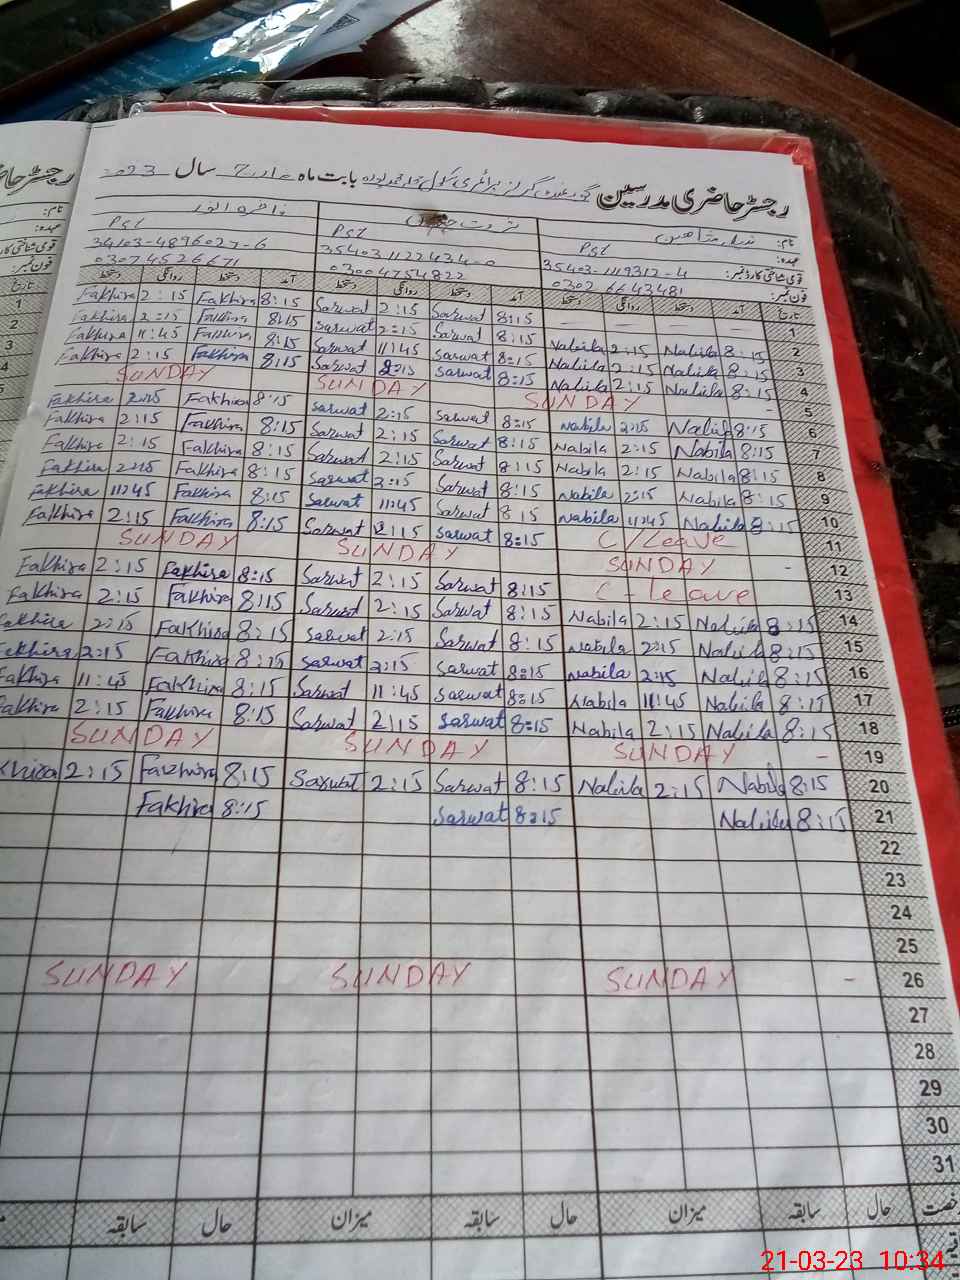 رجسٹر حاضری مدرسین گورنمنٹ گرلز پرائمری سکول بابت ماہ مارچ سال 2023
نام:
عہدہ: PST PST PST
قومی شناختی کارڈ نمبر: 35403-1119312-4 35403 1122434-0 34103-4896027-6
فون نمبر: 0302 6643481 03004754822 03074526671
تاریخ آمد دستخط روانگی دستخط آمد دستخط روانگی دستخط آمد دستخط روانگی دستخط
Fakhira 2:15 Fakhira 8:15 Sarwat 2:15 Sarwat 8:15 — — — — 1
Fakhira 2:15 Fakhira 8:15 Sarwat 2:15 Sarwat 8:15 Nabila 2:15 Nabila 8:15 2
Fakhira 11:45 Fakhira 8:15 Sarwat 11:45 Sarwat 8:15 Nabila 2:15 Nabila 8:15 3
Fakhira 2:15 Fakhira 8:15 Sarwat 2:15 Sarwat 8:15 Nabila 2:15 Nabila 8:15 4
SUNDAY SUNDAY SUNDAY - 5
Fakhira 2:15 Fakhira 8:15 Sarwat 2:15 Sarwat 8:15 Nabila 2:15 Nabila 8:15 6
Fakhira 2:15 Fakhira 8:15 Sarwat 2:15 Sarwat 8:15 Nabila 2:15 Nabila 8:15 7
Fakhira 2:15 Fakhira 8:15 Sarwat 2:15 Sarwat 8:15 Nabila 2:15 Nabila 8:15 8
Fakhira 2:15 Fakhira 8:15 Sarwat 2:15 Sarwat 8:15 Nabila 2:15 Nabila 8:15 9
Fakhira 11:45 Fakhira 8:15 Sarwat 11:45 Sarwat 8:15 Nabila 11:45 Nabila 8:15 10
Fakhira 2:15 Fakhira 8:15 Sarwat 2:15 Sarwat 8:15 C/Leave 11
SUNDAY SUNDAY SUNDAY - 12
Fakhira 2:15 Fakhira 8:15 Sarwat 2:15 Sarwat 8:15 C-leave 13
Fakhira 2:15 Fakhira 8:15 Sarwat 2:15 Sarwat 8:15 Nabila 2:15 Nabila 8:15 14
Fakhira 2:15 Fakhira 8:15 Sarwat 2:15 Sarwat 8:15 Nabila 2:15 Nabila 8:15 15
Fakhira 2:15 Fakhira 8:15 Sarwat 2:15 Sarwat 8:15 Nabila 2:15 Nabila 8:15 16
Fakhira 11:45 Fakhira 8:15 Sarwat 11:45 Sarwat 8:15 Nabila 11:45 Nabila 8:15 17
Fakhira 2:15 Fakhira 8:15 Sarwat 2:15 Sarwat 8:15 Nabila 2:15 Nabila 8:15 18
SUNDAY SUNDAY SUNDAY - 19
khira 2:15 Fakhira 8:15 Sarwat 2:15 Sarwat 8:15 Nabila 2:15 Nabila 8:15 20
Fakhira 8:15 Sarwat 8:15 Nabila 8:15 21
22
23
24
25
SUNDAY SUNDAY SUNDAY - 26
27
28
29
30
31
رخصت حال سابقہ میزان حال سابقہ میزان حال سابقہ
21-03-23 10:34